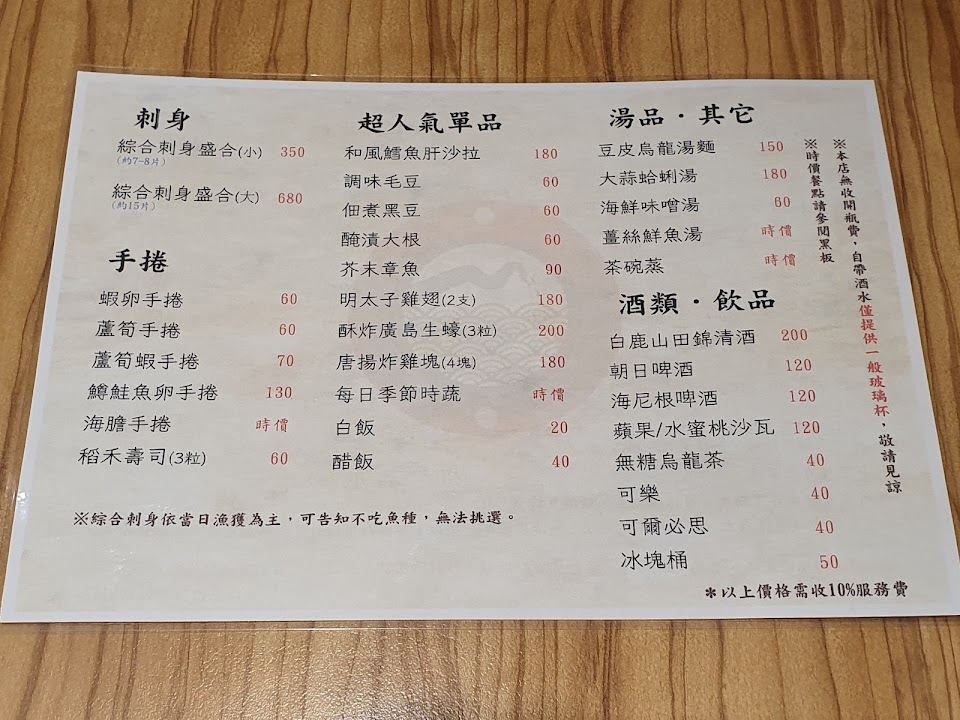 刺身
綜合刺身盛合(小) 350
(約7-8片)
綜合刺身盛合(大) 680
(約15片)
手捲
蝦卵手捲 60
蘆筍手捲 60
蘆筍蝦手捲 70
鱒鮭魚卵手捲 130
海膽手捲 時價
稻禾壽司(3粒) 60
超人氣單品
和風鱈魚肝沙拉 180
調味毛豆 60
佃煮黑豆 60
醃漬大根 60
芥末章魚 90
明太子雞翅(2支) 180
酥炸廣島生蠔(3粒) 200
唐揚炸雞塊(4塊) 180
每日季節時蔬 時價
白飯 20
醋飯 40
※綜合刺身依當日漁獲為主，可告知不吃魚種，無法挑選。
湯品·其它
豆皮烏龍湯麵 150
大蒜蛤蜊湯 180
海鮮味噌湯 60
薑絲鮮魚湯 時價
茶碗蒸 時價
酒類·飲品
白鹿山田錦清酒 200
朝日啤酒 120
海尼根啤酒 120
蘋果/水蜜桃沙瓦 120
無糖烏龍茶 40
可樂 40
可爾必思 40
冰塊桶 50
※本店無收開瓶費，自帶酒水僅提供一般玻璃杯，敬請見諒
※時價餐點請參閱黑板
＊以上價格需收10%服務費